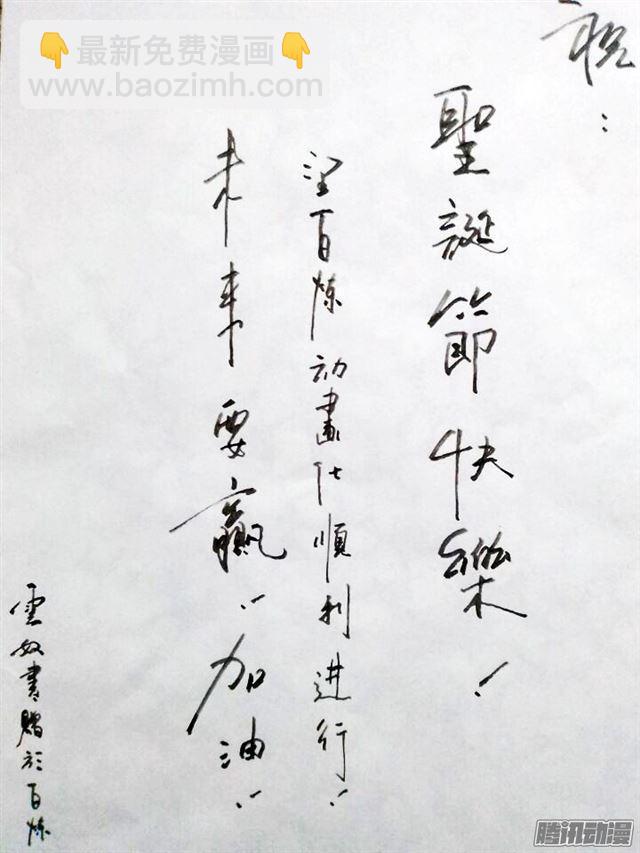 祝：
聖誕節快樂！
望百炼动畫化順利进行！
未来要贏！加油！
雲奴書贈於百炼
最新免费漫画
www.baozimh.com
腾讯动漫